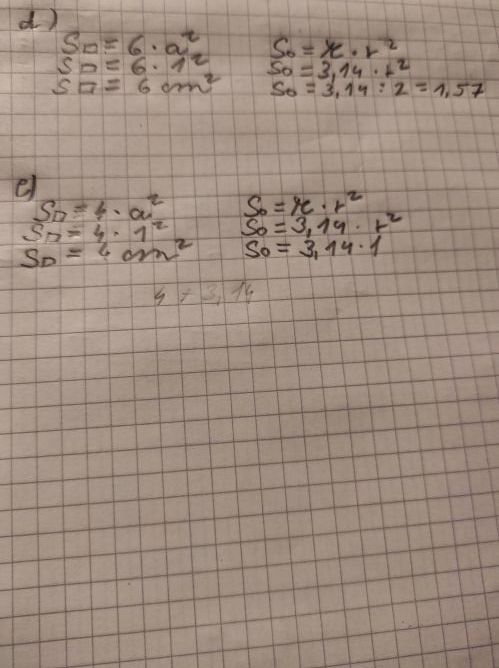 d)
S□ = 6 · a²
S□ = 6 · 1²
S□ = 6 cm²
So = π · r²
So = 3,14 · r²
So = 3,14 : 2 = 1,57
e)
S□ = 4 · a²
S□ = 4 · 1²
S□ = 4 cm²
So = π · r²
So = 3,14 · r²
So = 3,14 · 1
4 + 3,14